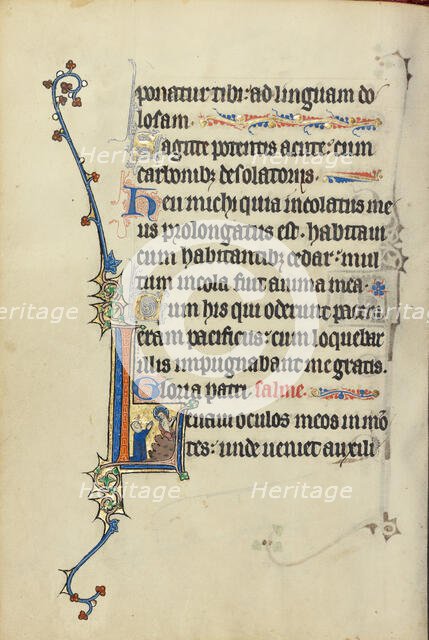 ponatur tibi: ad linguam do
losam.
Sagitte potentis acute: cum
carbonibz desolatoriis.
Heu michi quia incolatus me
us prolongatus est. habitaui
cum habitantibz cedar: mul
tum incola fuit anima mea.
Cum his qui oderunt pacem
eram pacificus: cum loquebar
illis impugnabant me gratis.
Gloria patri. salme.
Leuaui oculos meos in mō
tes: unde ueniet auxili
Heritage
Heritage
Heritage
Heritage
Heritage
Heritage
Heritage
Heritage